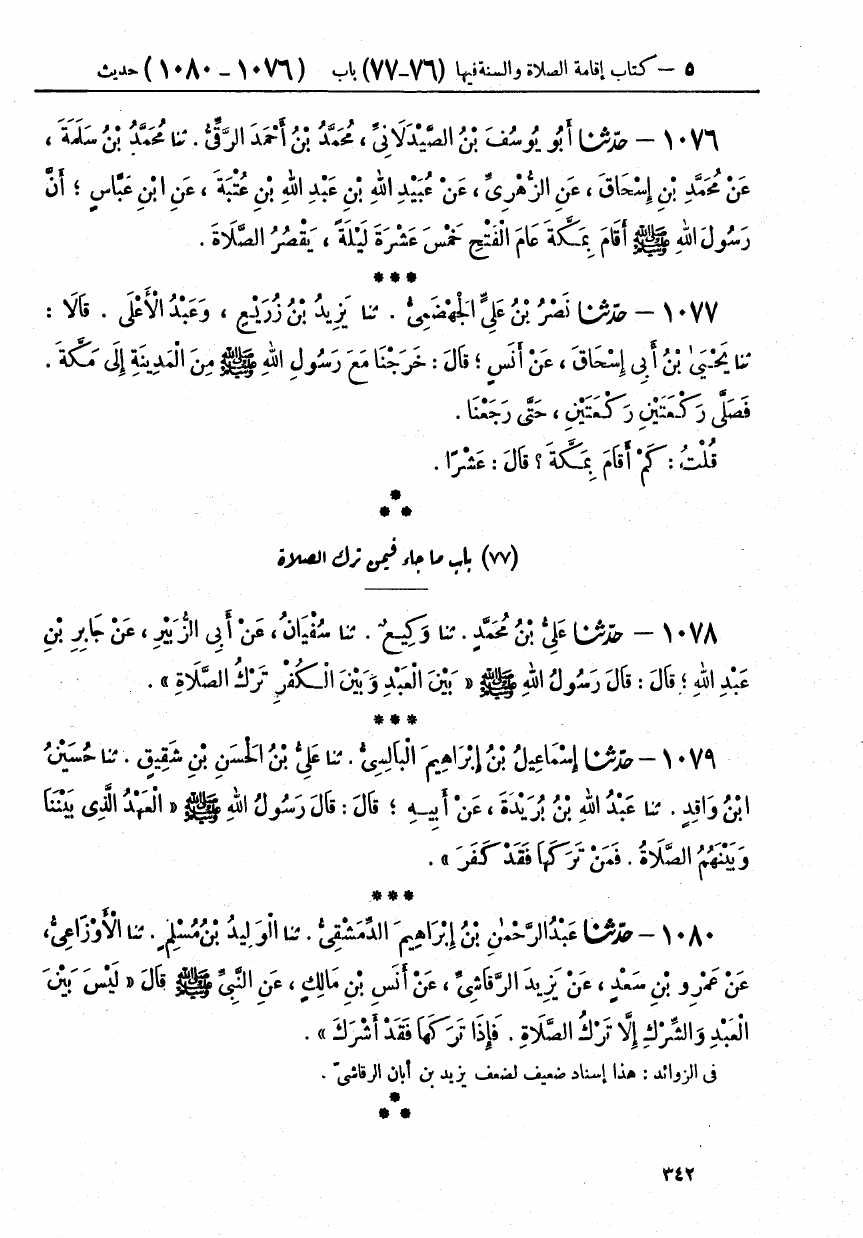 ٥ – كتاب إقامة الصلاة والسنة فيها (٧٦-٧٧) باب (١٠٧٦ – ١٠٨٠) حديث
١٠٧٦ – حدّثنا أَبُو يُوسُفَ بْنُ الصَّيْدَلَانِيِّ، مُحَمَّدُ بْنُ أَحْمَدَ الرَّقِّيُّ . ثنا مُحَمَّدُ بْنُ سَلَمَةَ ،
عَنْ مُحَمَّدِ بْنِ إِسْحَاقَ ، عَنِ الزُّهْرِيِّ ، عَنْ عُبَيْدِ اللهِ بْنِ عَبْدِ اللهِ بْنِ عُتْبَةَ ، عَنِ ابْنِ عَبَّاسٍ ؛ أَنَّ
رَسُولَ اللهِ ﷺ أَقَامَ بِمَكَّةَ عَامَ الْفَتْحِ خَمْسَ عَشْرَةَ لَيْلَةً ، يَقْصُرُ الصَّلَاةَ .
***
١٠٧٧ – حدّثنا نَصْرُ بْنُ عَلِيٍّ الْجَهْضَمِيُّ . ثنا يَزِيدُ بْنُ زُرَيْعٍ ، وَعَبْدُ الْأَعْلَى . قَالَا :
ثنا يَحْيَىٰ بْنُ أَبِي إِسْحَاقَ ، عَنْ أَنَسٍ ؛ قَالَ : خَرَجْنَا مَعَ رَسُولِ اللهِ ﷺ مِنَ الْمَدِينَةِ إِلَى مَكَّةَ .
فَصَلَّى رَكْعَتَيْنِ رَكْعَتَيْنِ ، حَتَّى رَجَعْنَا .
قُلْتُ : كَمْ أَقَامَ بِمَكَّةَ ؟ قَالَ : عَشْرًا .
***
(٧٧) باب ما جاء فيمن ترك الصلاة
١٠٧٨ – حدّثنا عَلِيُّ بْنُ مُحَمَّدٍ . ثنا وَكِيعٌ . ثنا سُفْيَانُ ، عَنْ أَبِي الزُّبَيْرِ ، عَنْ جَابِرِ بْنِ
عَبْدِ اللهِ ؛ قَالَ : قَالَ رَسُولُ اللهِ ﷺ « بَيْنَ الْعَبْدِ وَبَيْنَ الْكُفْرِ تَرْكُ الصَّلَاةِ » .
***
١٠٧٩ – حدّثنا إِسْمَاعِيلُ بْنُ إِبْرَاهِيمَ الْبَالِسِيُّ . ثنا عَلِيُّ بْنُ الْحَسَنِ بْنِ شَقِيقٍ . ثنا حُسَيْنُ
ابْنُ وَاقِدٍ . ثنا عَبْدُ اللهِ بْنُ بُرَيْدَةَ ، عَنْ أَبِيهِ ؛ قَالَ : قَالَ رَسُولُ اللهِ ﷺ « الْعَهْدُ الَّذِي بَيْنَنَا
وَبَيْنَهُمُ الصَّلَاةُ . فَمَنْ تَرَكَهَا فَقَدْ كَفَرَ » .
***
١٠٨٠ – حدّثنا عَبْدُ الرَّحْمٰنِ بْنُ إِبْرَاهِيمَ الدِّمَشْقِيُّ . ثنا الْوَلِيدُ بْنُ مُسْلِمٍ . ثنا الْأَوْزَاعِيُّ،
عَنْ عَمْرِو بْنِ سَعْدٍ ، عَنْ يَزِيدَ الرَّقَاشِيِّ ، عَنْ أَنَسِ بْنِ مَالِكٍ ، عَنِ النَّبِيِّ ﷺ قَالَ « لَيْسَ بَيْنَ
الْعَبْدِ وَالشِّرْكِ إِلَّا تَرْكُ الصَّلَاةِ . فَإِذَا تَرَكَهَا فَقَدْ أَشْرَكَ » .
فى الزوائد : هذا إسناد ضعيف لضعف يزيد بن أبان الرقاشىّ .
***
٣٤٢